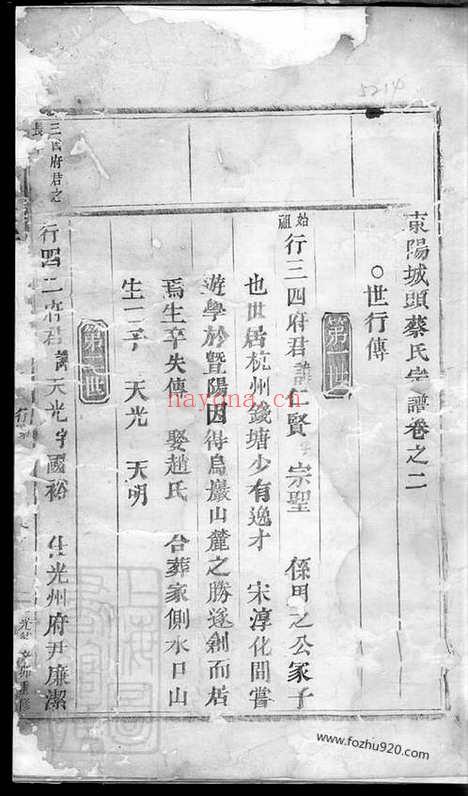 5214
東陽城頭蔡氏宗譜卷之二
○世行傳
第一世
始祖
行三四府君諱仁賢字宗聖 係用之公冢子
也世居杭州錢塘少有逸才 宋淳化間嘗
遊學於暨陽因得烏巖山麓之勝遂創而居
焉生卒失傳 娶趙氏 合葬家側水口山
生二子 天光 天明
第二世
三四府君之長
行四二府君諱天光字國裕 仕光州府尹廉潔
hayona.cn
www.fozhu920.com